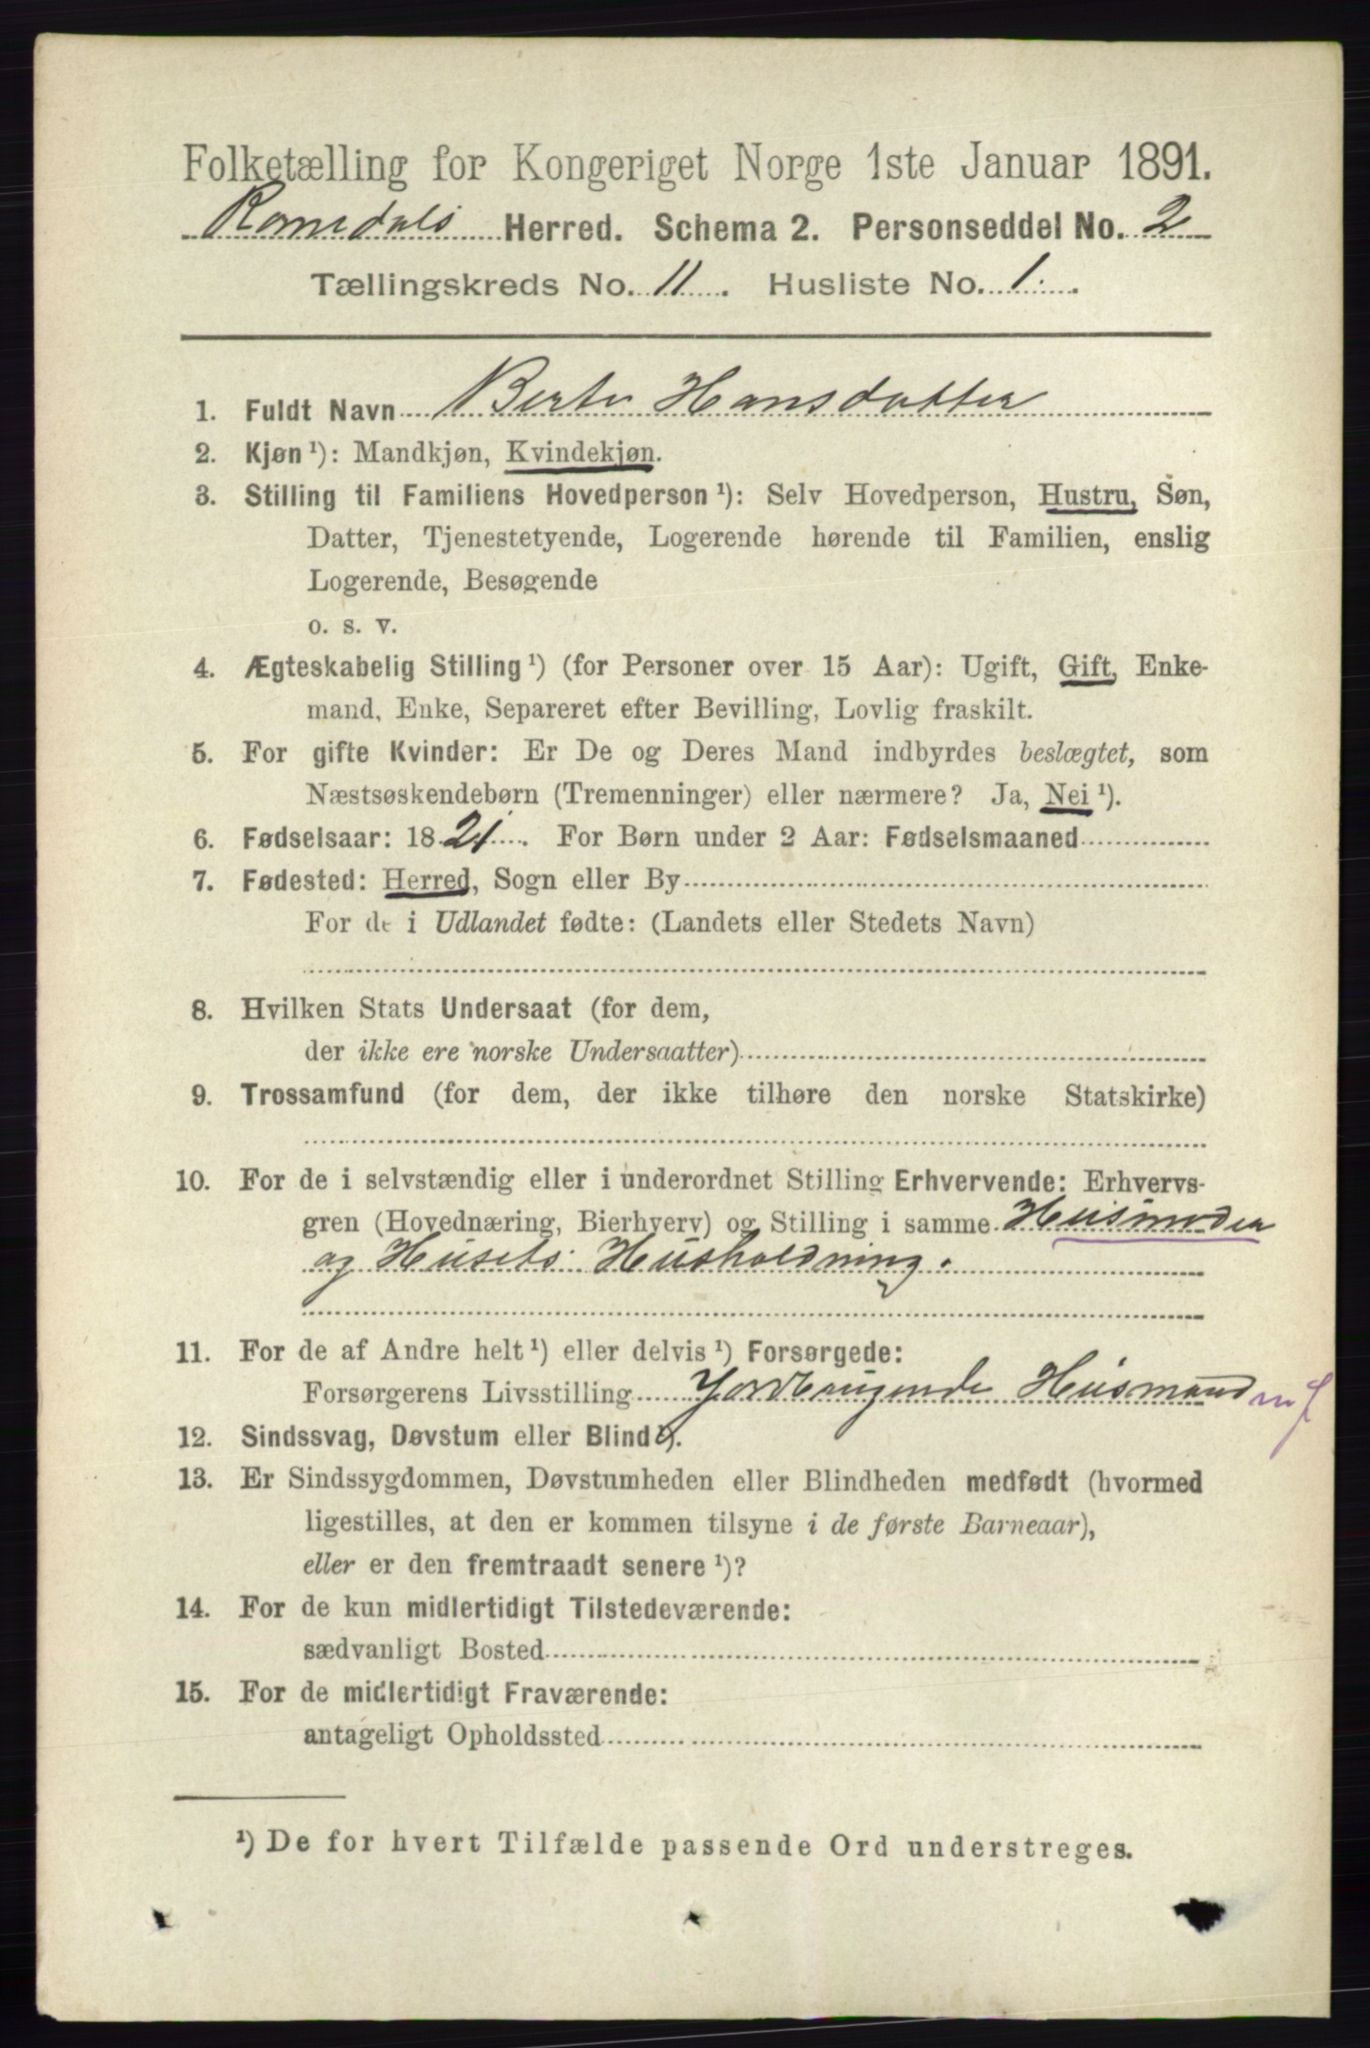 Folketælling for Kongeriget Norge 1ste Januar 1891.
Romedals Herred. Schema 2. Personseddel No. 2
Tællingskreds No. 11. Husliste No. 1.
1. Fuldt Navn Berte Hansdatter
2. Kjøn ¹): Mandkjøn, Kvindekjøn.
3. Stilling til Familiens Hovedperson ¹): Selv Hovedperson, Hustru, Søn,
Datter, Tjenestetyende, Logerende hørende til Familien, enslig
Logerende, Besøgende
o. s. v.
4. Ægteskabelig Stilling ¹) (for Personer over 15 Aar): Ugift, Gift, Enke-
mand, Enke, Separeret efter Bevilling, Lovlig fraskilt.
5. For gifte Kvinder: Er De og Deres Mand indbyrdes beslægtet, som
Næstsøskendebørn (Tremenninger) eller nærmere? Ja, Nei ¹).
6. Fødselsaar: 1821. For Børn under 2 Aar: Fødselsmaaned
7. Fødested: Herred, Sogn eller By
For de i Udlandet fødte: (Landets eller Stedets Navn)
8. Hvilken Stats Undersaat (for dem,
der ikke ere norske Undersaatter)
9. Trossamfund (for dem, der ikke tilhøre den norske Statskirke)
10. For de i selvstændig eller i underordnet Stilling Erhvervende: Erhvervs-
gren (Hovednæring, Bierhverv) og Stilling i samme Husmoder
og Husets Husholdning.
11. For de af Andre helt ¹) eller delvis ¹) Forsørgede:
Forsørgerens Livsstilling Jordbrugende Husmand mJ
12. Sindssvag, Døvstum eller Blind ¹).
13. Er Sindssygdommen, Døvstumheden eller Blindheden medfødt (hvormed
ligestilles, at den er kommen tilsyne i de første Barneaar),
eller er den fremtraadt senere ¹)?
14. For de kun midlertidigt Tilstedeværende:
sædvanligt Bosted
15. For de midlertidigt Fraværende:
antageligt Opholdssted
¹) De for hvert Tilfælde passende Ord understreges.